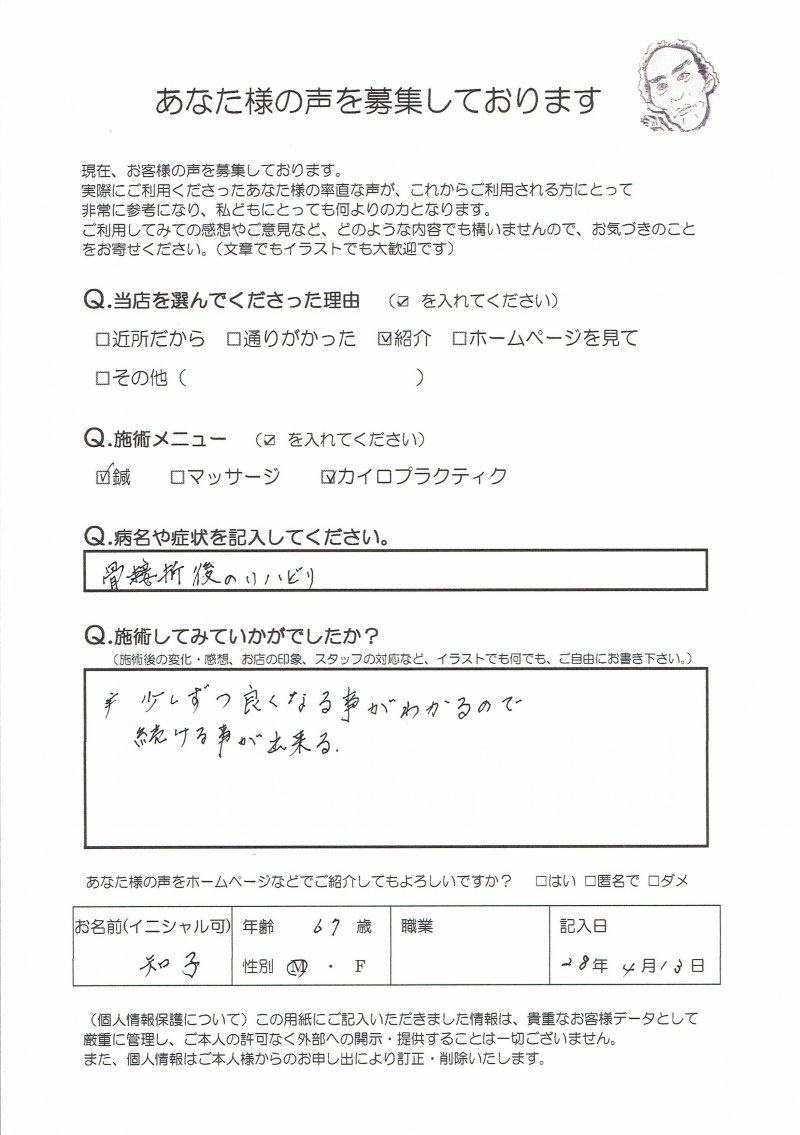 あなた様の声を募集しております
現在、お客様の声を募集しております。
実際にご利用くださったあなた様の率直な声が、これからご利用される方にとって
非常に参考になり、私どもにとっても何よりの力となります。
ご利用してみての感想やご意見など、どのような内容でも構いませんので、お気づきのこと
をお寄せください。（文章でもイラストでも大歓迎です）
Q.当店を選んでくださった理由　（☑ を入れてください）
□近所だから　□通りがかった　☑紹介　□ホームページを見て
□その他（　　　　　　　　　　　　）
Q.施術メニュー　（☑ を入れてください）
☑鍼　□マッサージ　☑カイロプラクティク
Q.病名や症状を記入してください。
骨折後のリハビリ
Q.施術してみていかがでしたか？
（施術後の変化・感想、お店の印象、スタッフの対応など、イラストでも何でも、ご自由にお書き下さい。）
少しずつ良くなる事がわかるので
続ける事が出来る.
あなた様の声をホームページなどでご紹介してもよろしいですか？　□はい □匿名で □ダメ
お名前(イニシャル可)　年齢　67　歳　職業　記入日
知子　性別　M ・ F　28年 4月13日
（個人情報保護について）この用紙にご記入いただきました情報は、貴重なお客様データとして
厳重に管理し、ご本人の許可なく外部への開示・提供することは一切ございません。
また、個人情報はご本人様からのお申し出により訂正・削除いたします。